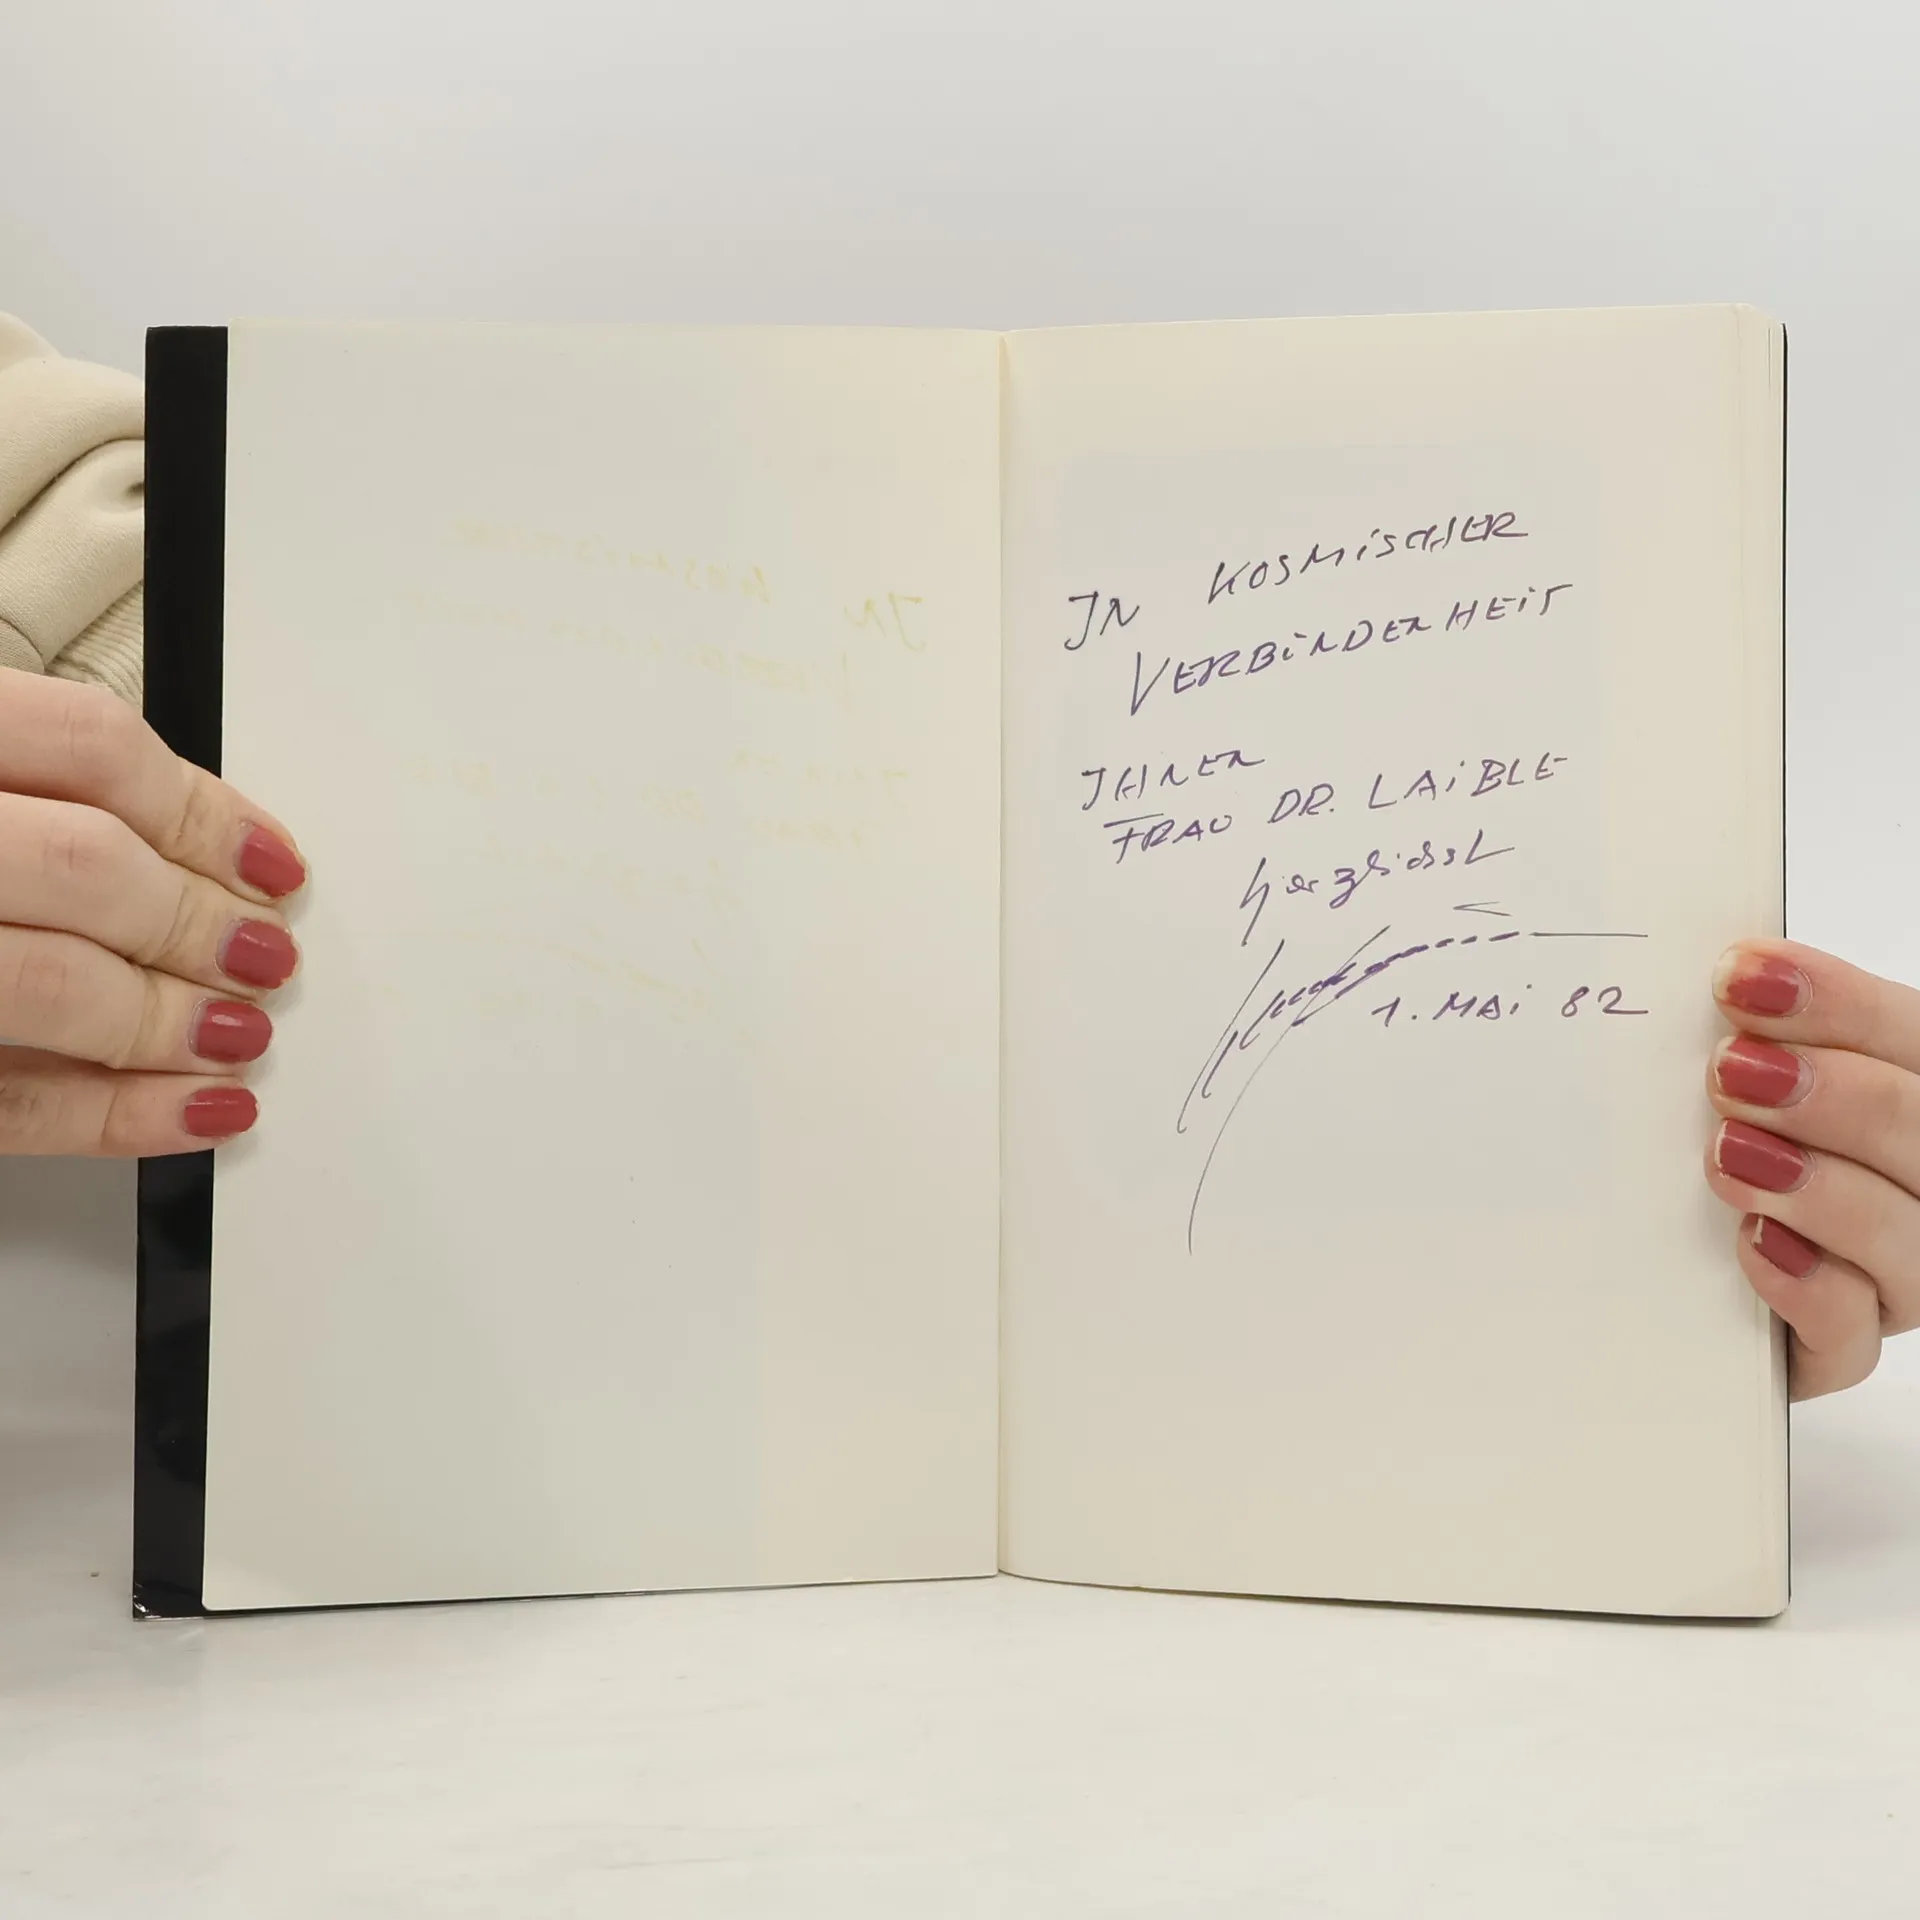 IN KOSMISCHER
VERBINDENHEIT
IHNEN
FRAU DR. LAIBLE
herzlichst
1. MAI 82